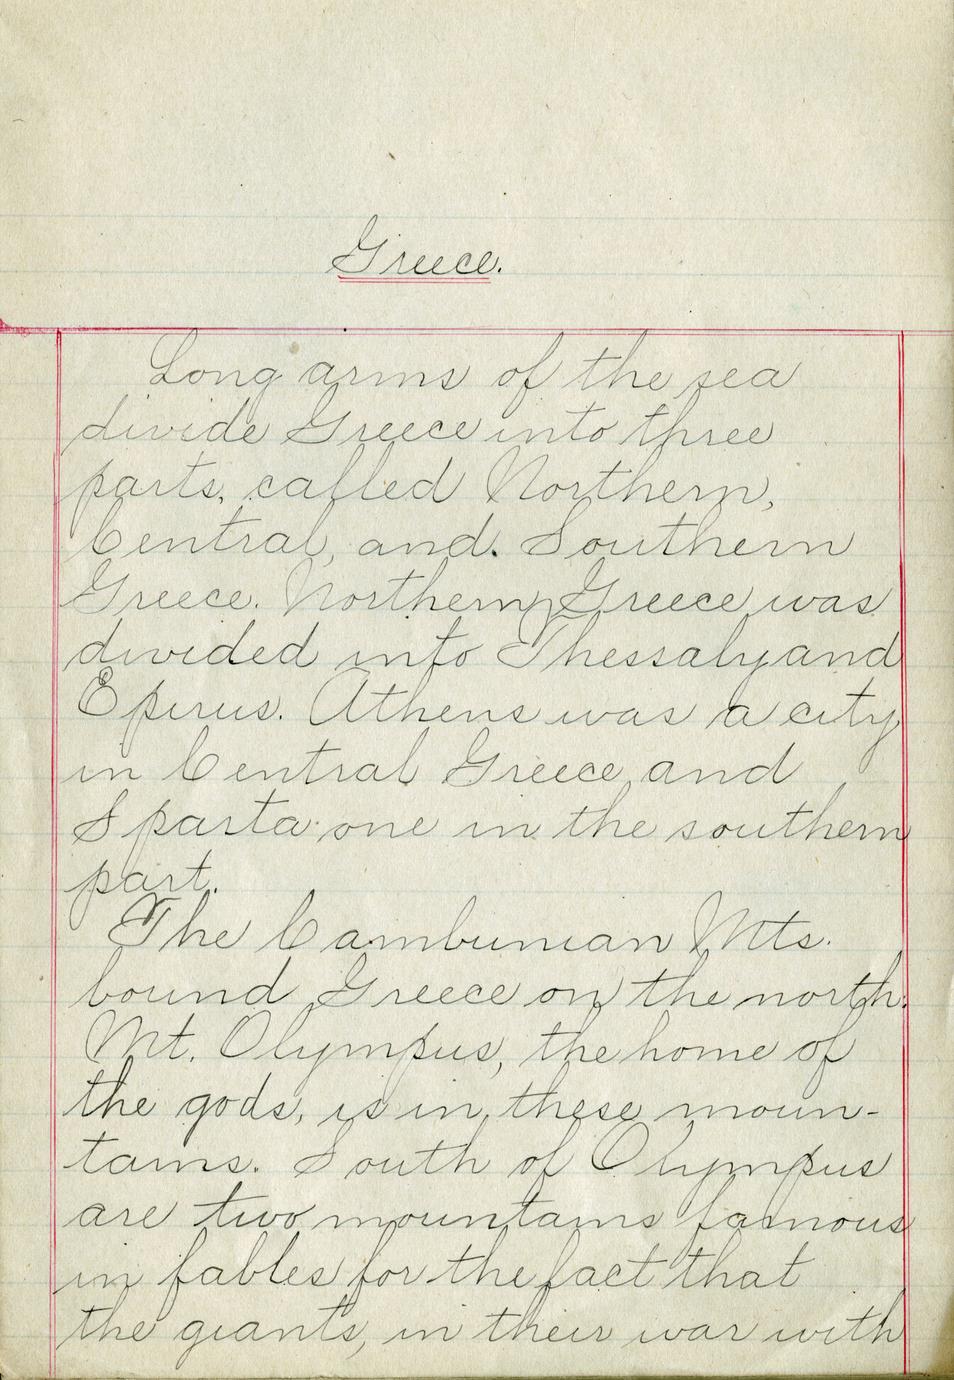 Greece.
Long arms of the sea
divide Greece into three
parts, called Northern,
Central, and Southern
Greece. Northern Greece was
divided into Thessaly and
Epirus. Athens was a city
in Central Greece and
Sparta one in the southern
part.
The Cambunian Mts.
bound Greece on the north.
Mt. Olympus, the home of
the gods, is in these moun-
tains. South of Olympus
are two mountains famous
in fables for the fact that
the giants, in their war with